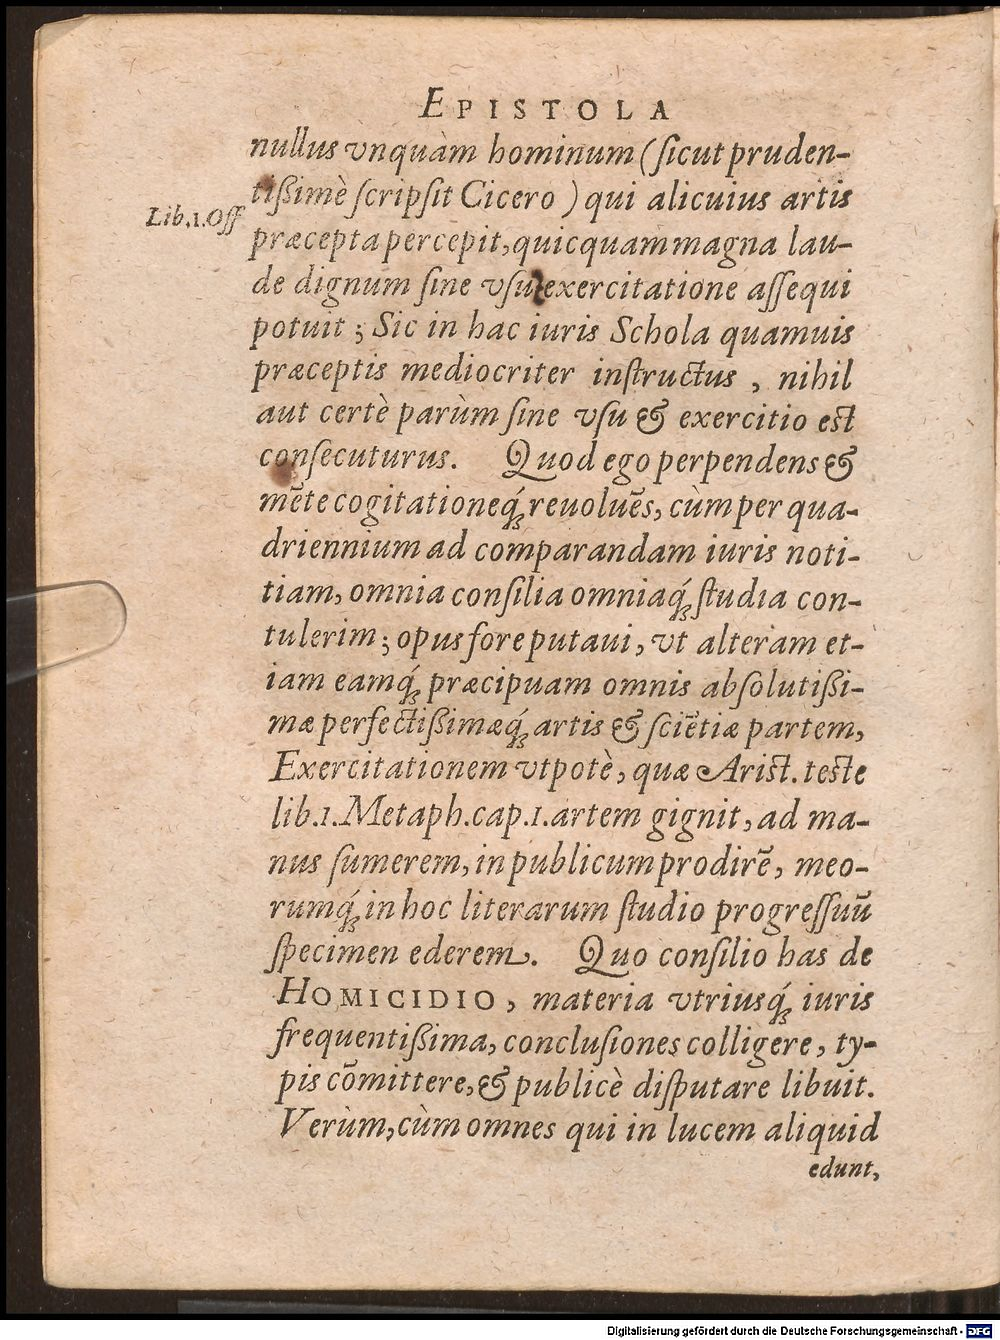 EPISTOLA
nullus vnquàm hominum (ſicut pruden-
tißimè ſcripſit Cicero) qui alicuius artis
Lib.1.Off
præcepta percepit, quicquam magna lau-
de dignum ſine vſu exercitatione aſſequi
potuit; Sic in hac iuris Schola quamuis
præceptis mediocriter inſtructus, nihil
aut certè parùm ſine vſu & exercitio eſt
conſecuturus. Quod ego perpendens &
mẽte cogitationeq́ꝫ reuoluẽs, cùm per qua-
driennium ad comparandam iuris noti-
tiam, omnia conſilia omniaq́ꝫ ſtudia con-
tulerim; opus fore putaui, vt alteram et-
iam eamq́ꝫ præcipuam omnis abſolutißi-
mæ perfectißimæq́ꝫ artis & ſciẽtiæ partem,
Exercitationem vtpotè, quæ Ariſt. teſte
lib.1. Metaph. cap.1. artem gignit, ad ma-
nus ſumerem, in publicum prodirẽ, meo-
rumq́ꝫ in hoc literarum ſtudio progreſſuũ
ſpecimen ederem. Quo conſilio has de
HOMICIDIO, materia vtriusq́ꝫ iuris
frequentißima, concluſiones colligere, ty-
pis cõmittere, & publicè diſputare libuit.
Verùm, cùm omnes qui in lucem aliquid
edunt,
Digitalisierung gefördert durch die Deutsche Forschungsgemeinschaft - DFG